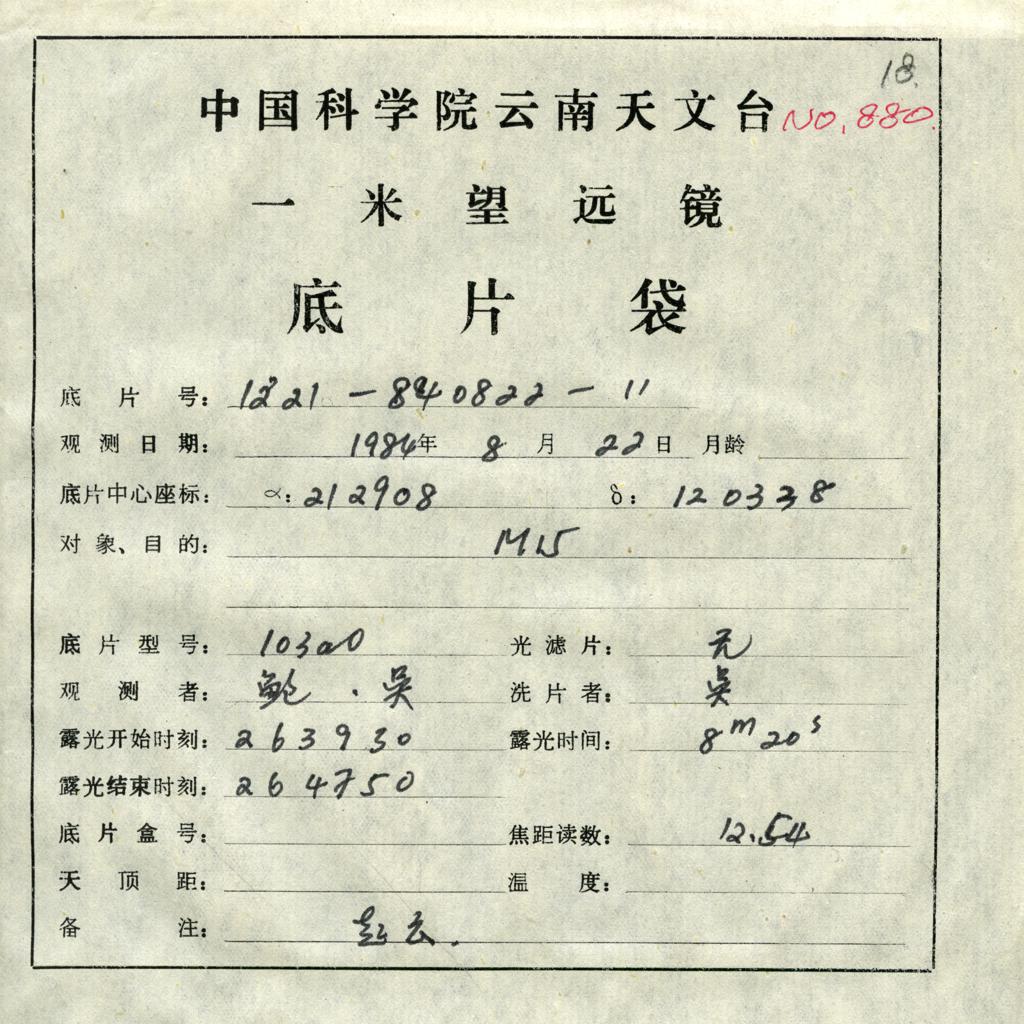 18.
中国科学院云南天文台 NO.880.
一米望远镜
底片袋
底片号: 1221-840822-11
观测日期: 1984年 8月 22日 月龄
底片中心座标: α: 212908 δ: 120338
对象、目的: M15
底片型号: 103aO 光滤片: 无
观测者: 鲍.吴 洗片者: 吴
露光开始时刻: 263930 露光时间: 8m20s
露光结束时刻: 264750
底片盒号: 焦距读数: 12.54
天顶距: 温度:
备注: 起云.